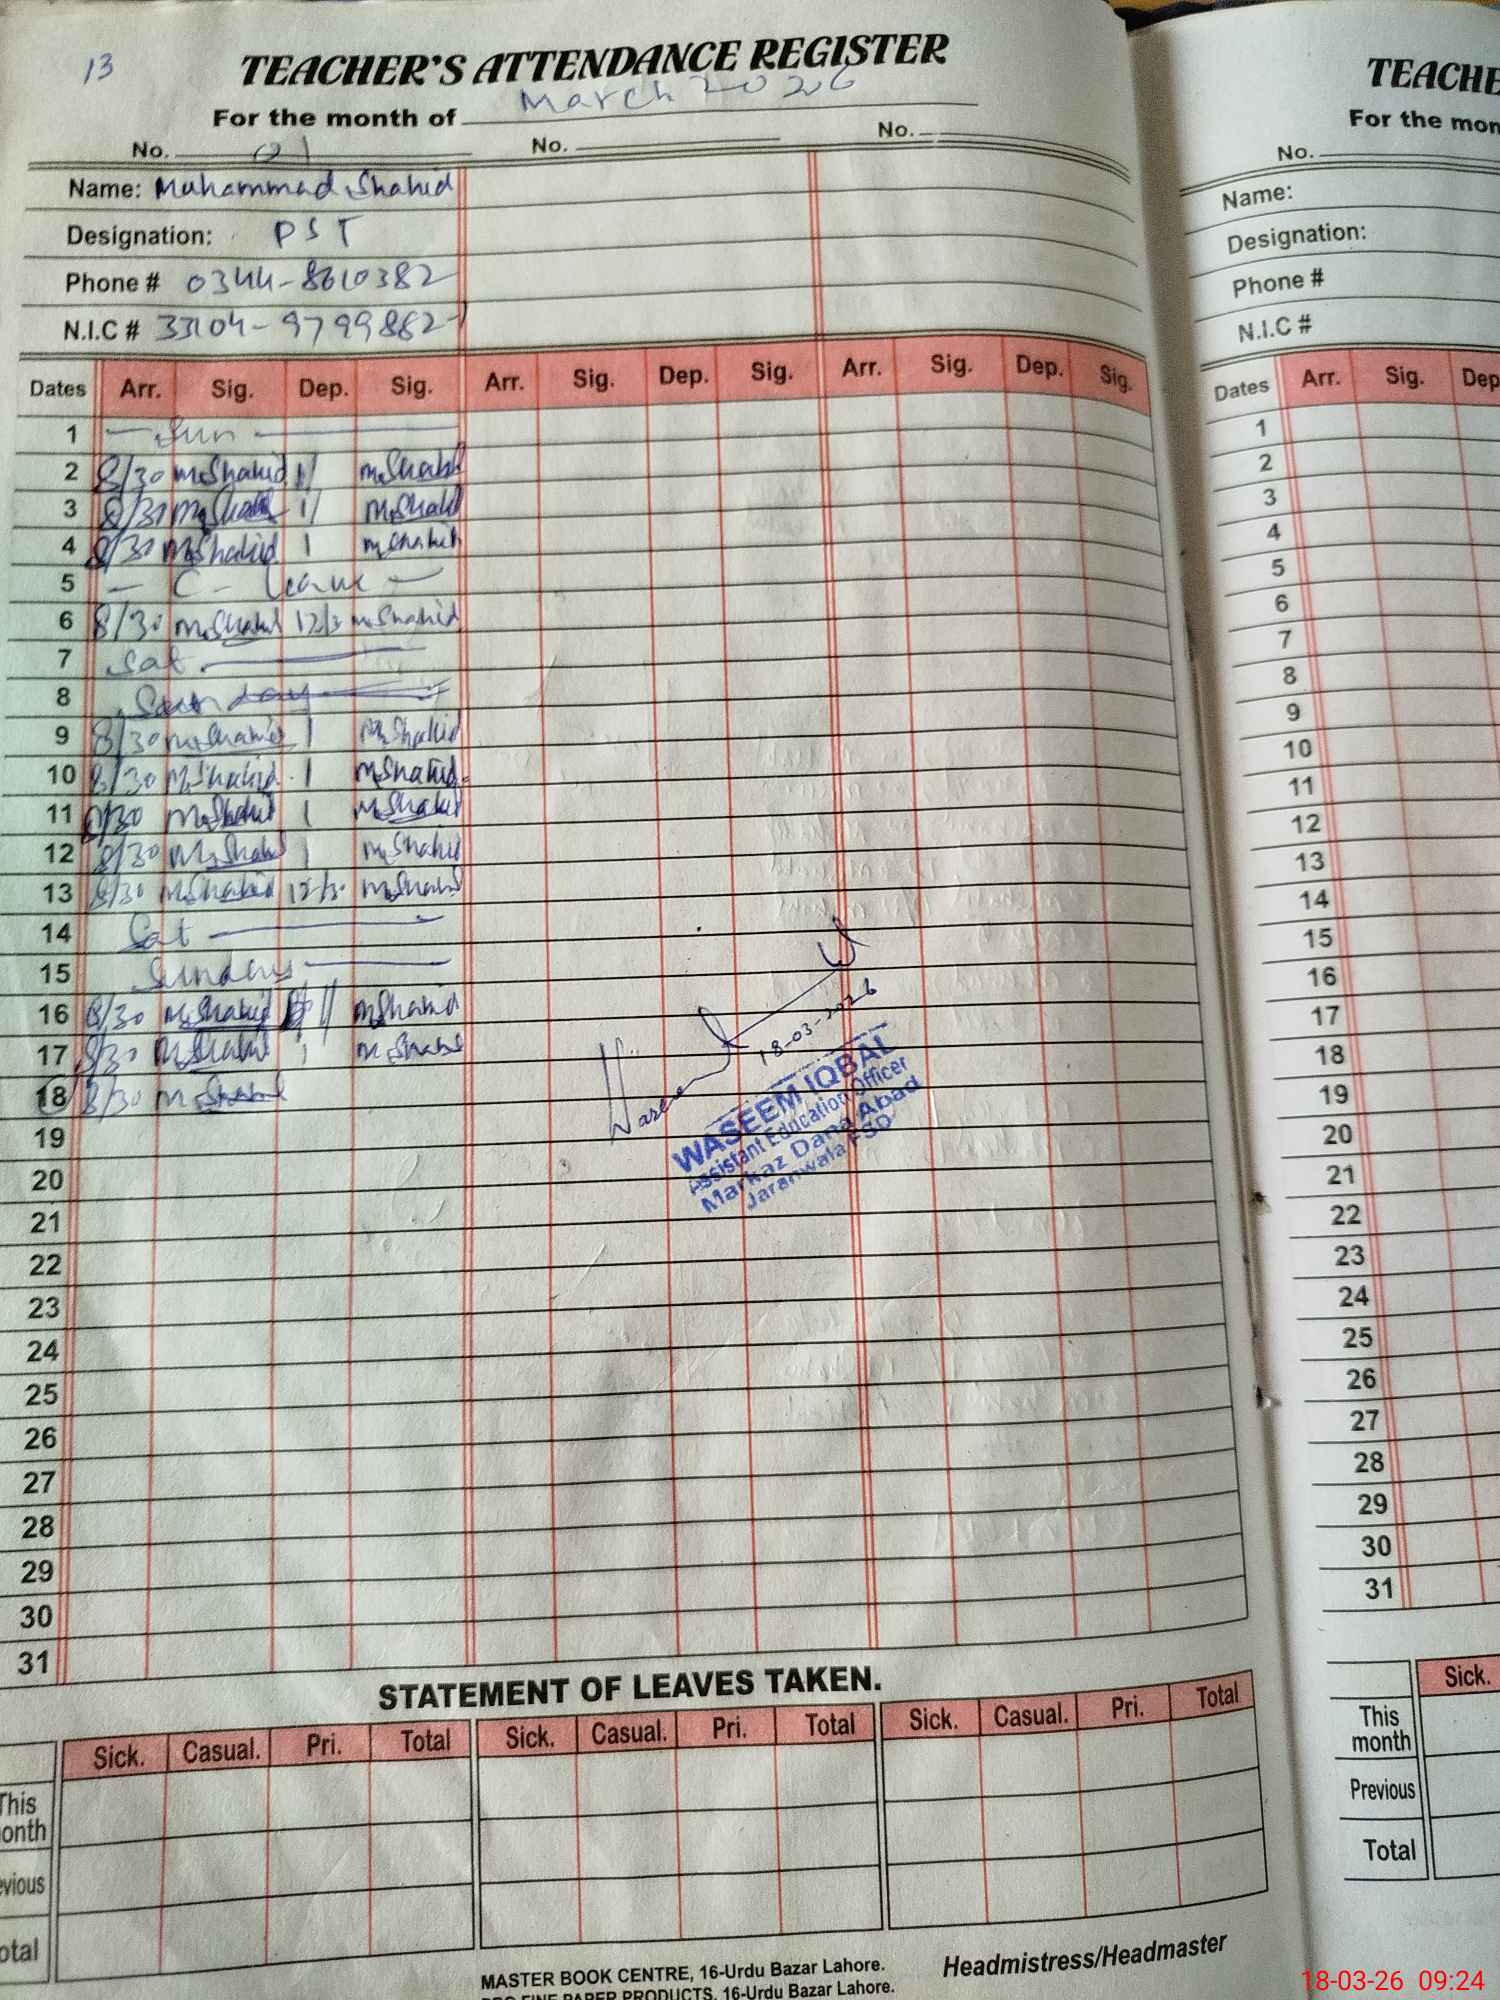 13
TEACHER'S ATTENDANCE REGISTER
For the month of March 2026
No. 01 No. No.
Name: Muhammad Shahid
Designation: PST
Phone # 0344-8610382
N.I.C # 33104-9799882-1
Dates Arr. Sig. Dep. Sig. Arr. Sig. Dep. Sig. Arr. Sig. Dep. Sig.
1 Sun
2 8/30 M.Shahid 1 M.Shahid
3 8/30 M.Shahid 1 M.Shahid
4 8/30 M.Shahid 1 M.Shahid
5 - C - Leave -
6 8/30 M.Shahid 12/3 M.Shahid
7 Sat
8 Sunday
9 8/30 M.Shahid 1 M.Shahid
10 8/30 M.Shahid 1 M.Shahid
11 8/30 M.Shahid 1 M.Shahid
12 8/30 M.Shahid 1 M.Shahid
13 8/30 M.Shahid 12/30 M.Shahid
14 Sat
15 Sunday
16 8/30 M.Shahid M.Shahid
17 8/30 M.Shahid 1 M.Shahid
18 8/30 M.Shahid
19
20
21
22
23
24
25
26
27
28
29
30
31
Waseem
18-03-2026
WASEEM IQBAL
Assistant Education Officer
Markaz Dana Abad
Jaranwala FSD
STATEMENT OF LEAVES TAKEN.
Sick. Casual. Pri. Total Sick. Casual. Pri. Total Sick. Casual. Pri. Total
This
onth
evious
otal
MASTER BOOK CENTRE, 16-Urdu Bazar Lahore.
PRO FINE PAPER PRODUCTS, 16-Urdu Bazar Lahore.
Headmistress/Headmaster
TEACHE
For the mon
No.
Name:
Designation:
Phone #
N.I.C #
Dates Arr. Sig. Dep
1
2
3
4
5
6
7
8
9
10
11
12
13
14
15
16
17
18
19
20
21
22
23
24
25
26
27
28
29
30
31
Sick.
This
month
Previous
Total
18-03-26 09:24